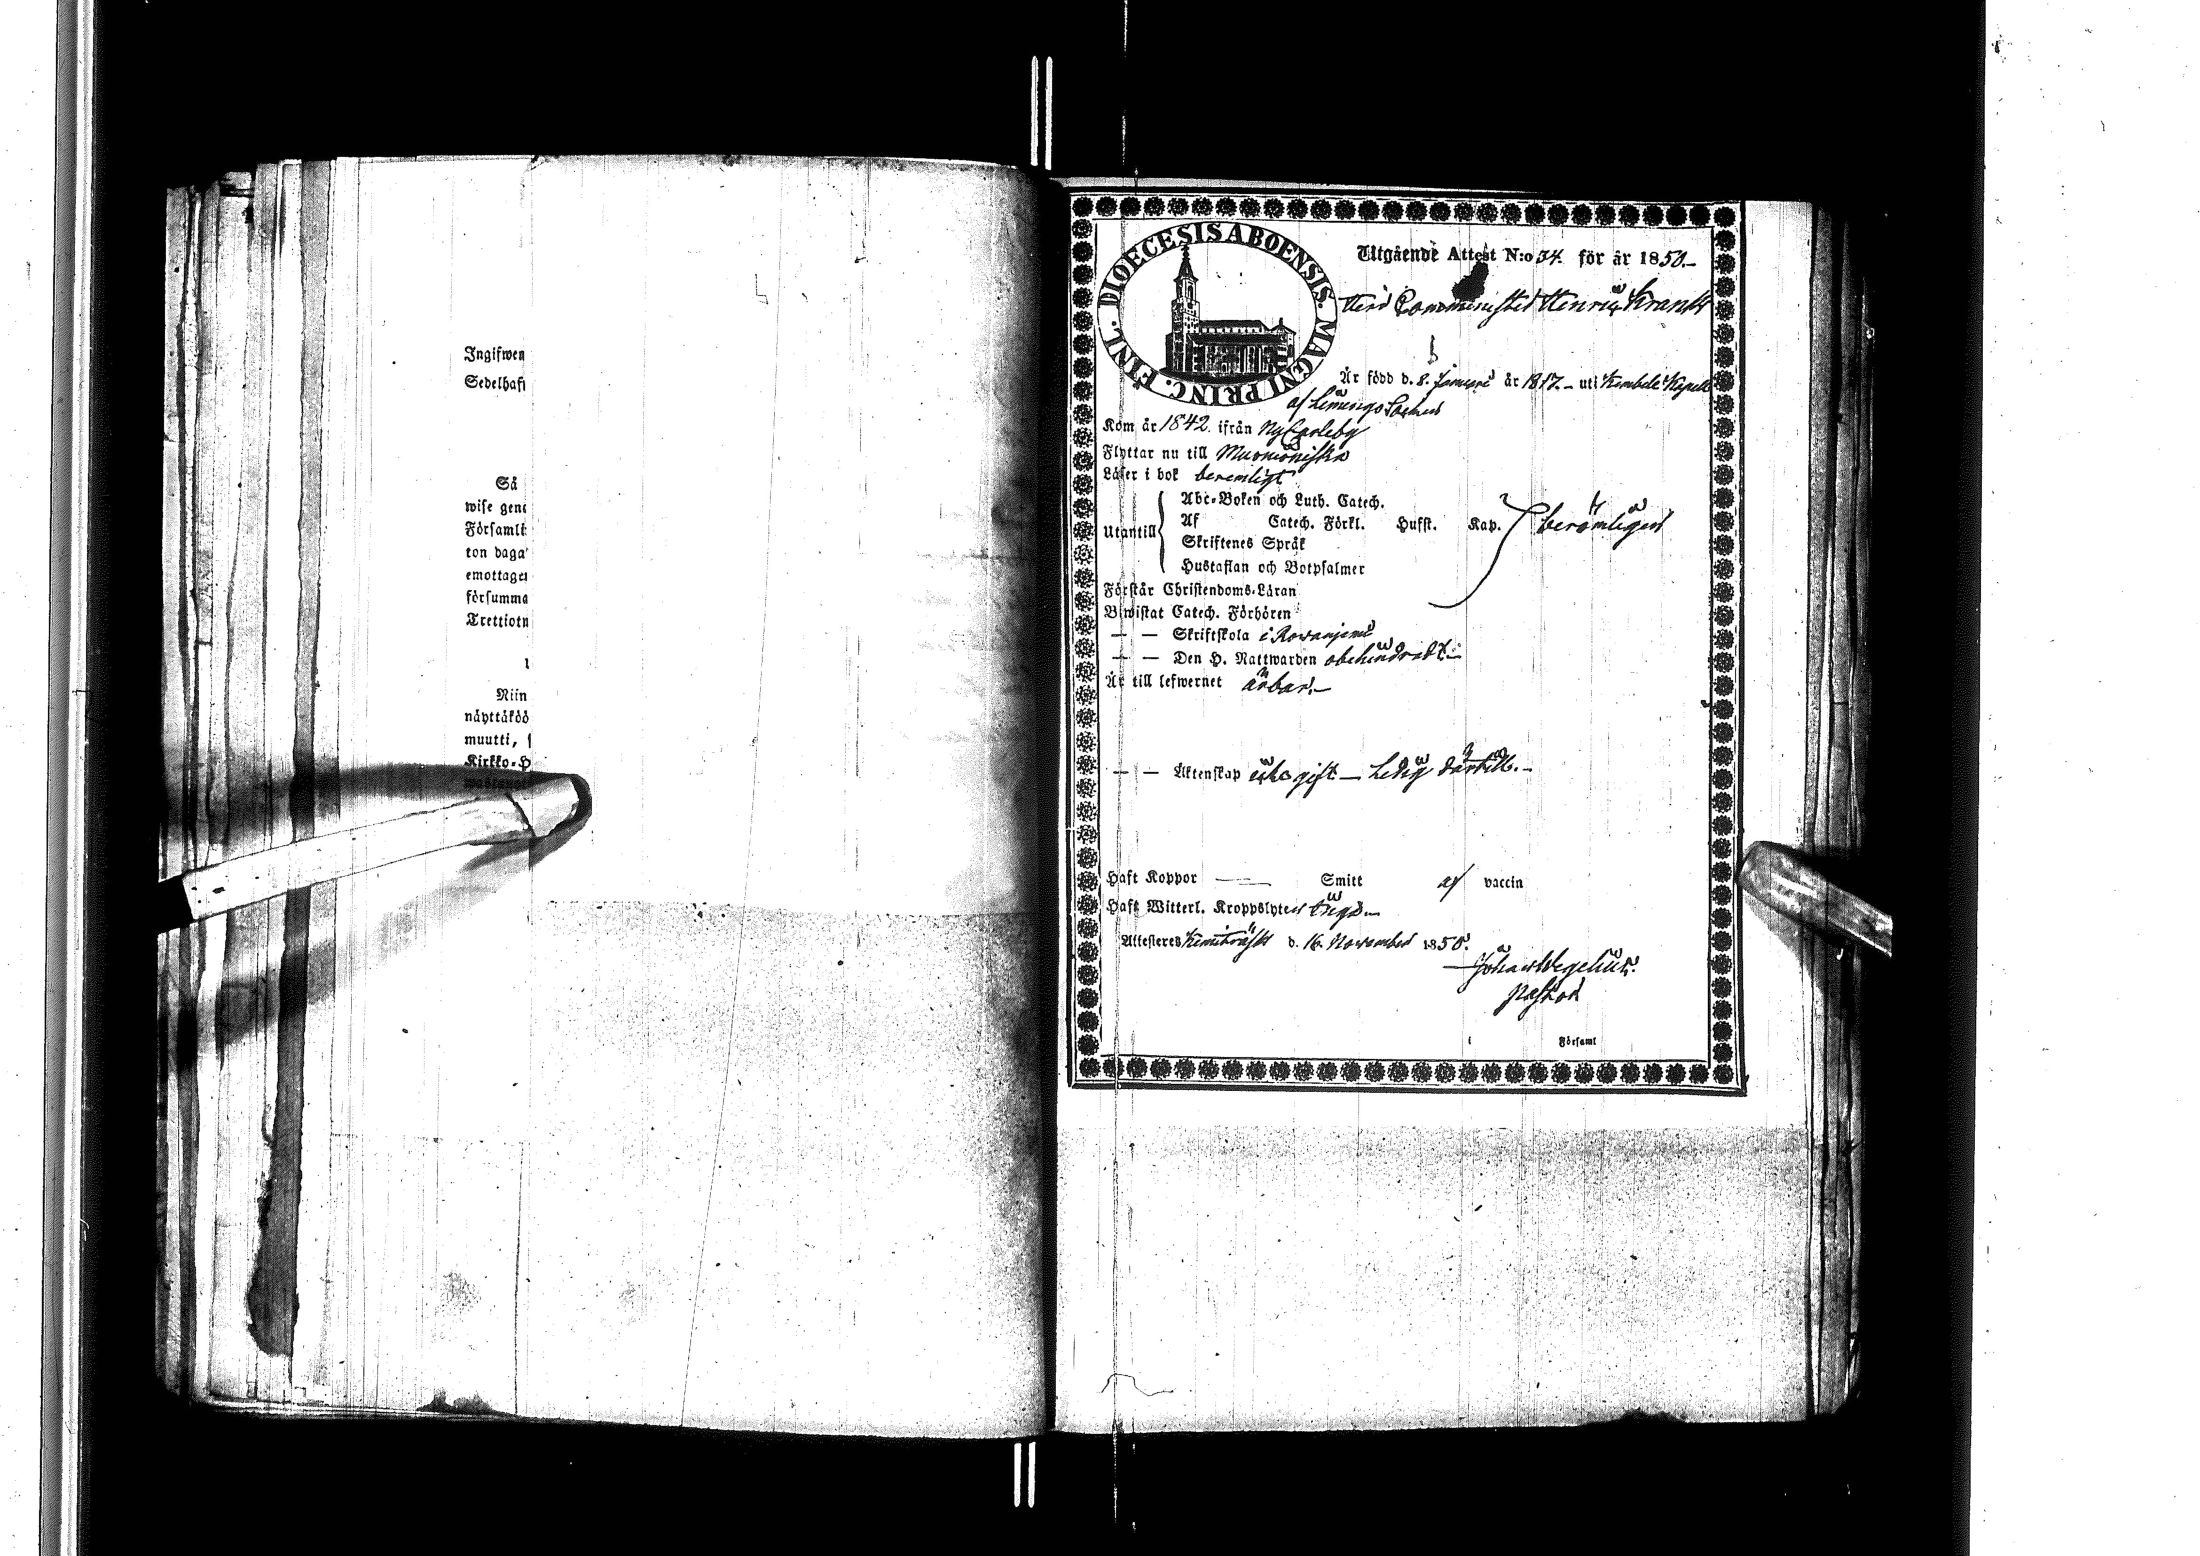 Ingifwen
Sedelhafi
Så
wise gene
Församli
ton daga
emottager
försumma
Trettiotn
Niin
näyttäköö
muutti,
Kirkko-H
DIOECESIS ABOENSIS. MAGNI PRINC. FINL.
Utgående Attest N:o 34. för år 1850.–
Herr Comministern Henric Krank
Är född d. 8. Januari år 1817.– uti Kembele Kapell
af Limingo Socken
Kom år 1842. ifrån Ny Carleby
Flyttar nu till Muonioniska
Läser i bok beremligt
Utantill
Abc-Boken och Luth. Catech.
Af Catech. Förkl. Husst. Kap. berömligen
Skriftenes Språk
Hustaflan och Botpsalmer
Förstår Christendoms-Läran
Biwistat Catech. Förhören
— — Skriftskola i Rovanjemi
— — Den H. Nattwarden obehindradt.–
Är till lefwernet ärbar.–
— — Äktenskap icke gift – Ledig därtill.–
Haft Koppor — Smitt af vaccin
Haft Witterl. Kroppslyten inga.–
Attesteres Kemiträsk d. 16. November 1850.
Johan Wegelius.
Pastor
i Församl